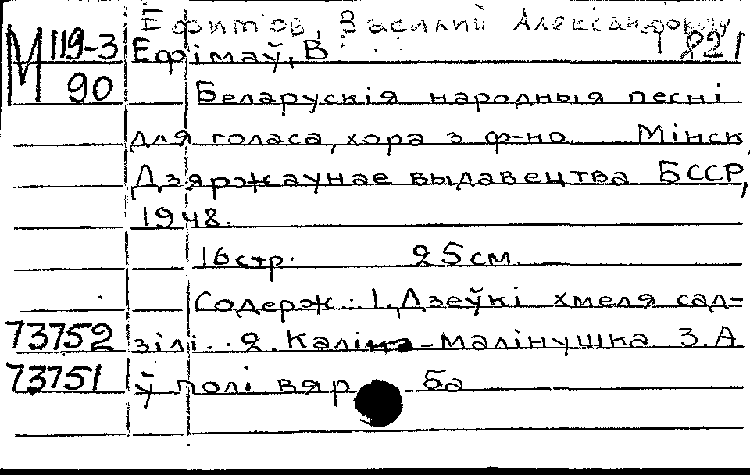 Ефимов, Василий Александрович
М 119-3 Ефімаў, В. 821
90 Беларускія народныя песні
для голаса, хора з ф-но Мінск,
Дзяржаунае выдавецтва БССР,
1948.
16 стр. 25 см.
Содерж.: 1. Дзеўкі хмеля сад-
73752 зілі.. 2. Каліна-малінушка 3. А
73751 ў полі вяр ба